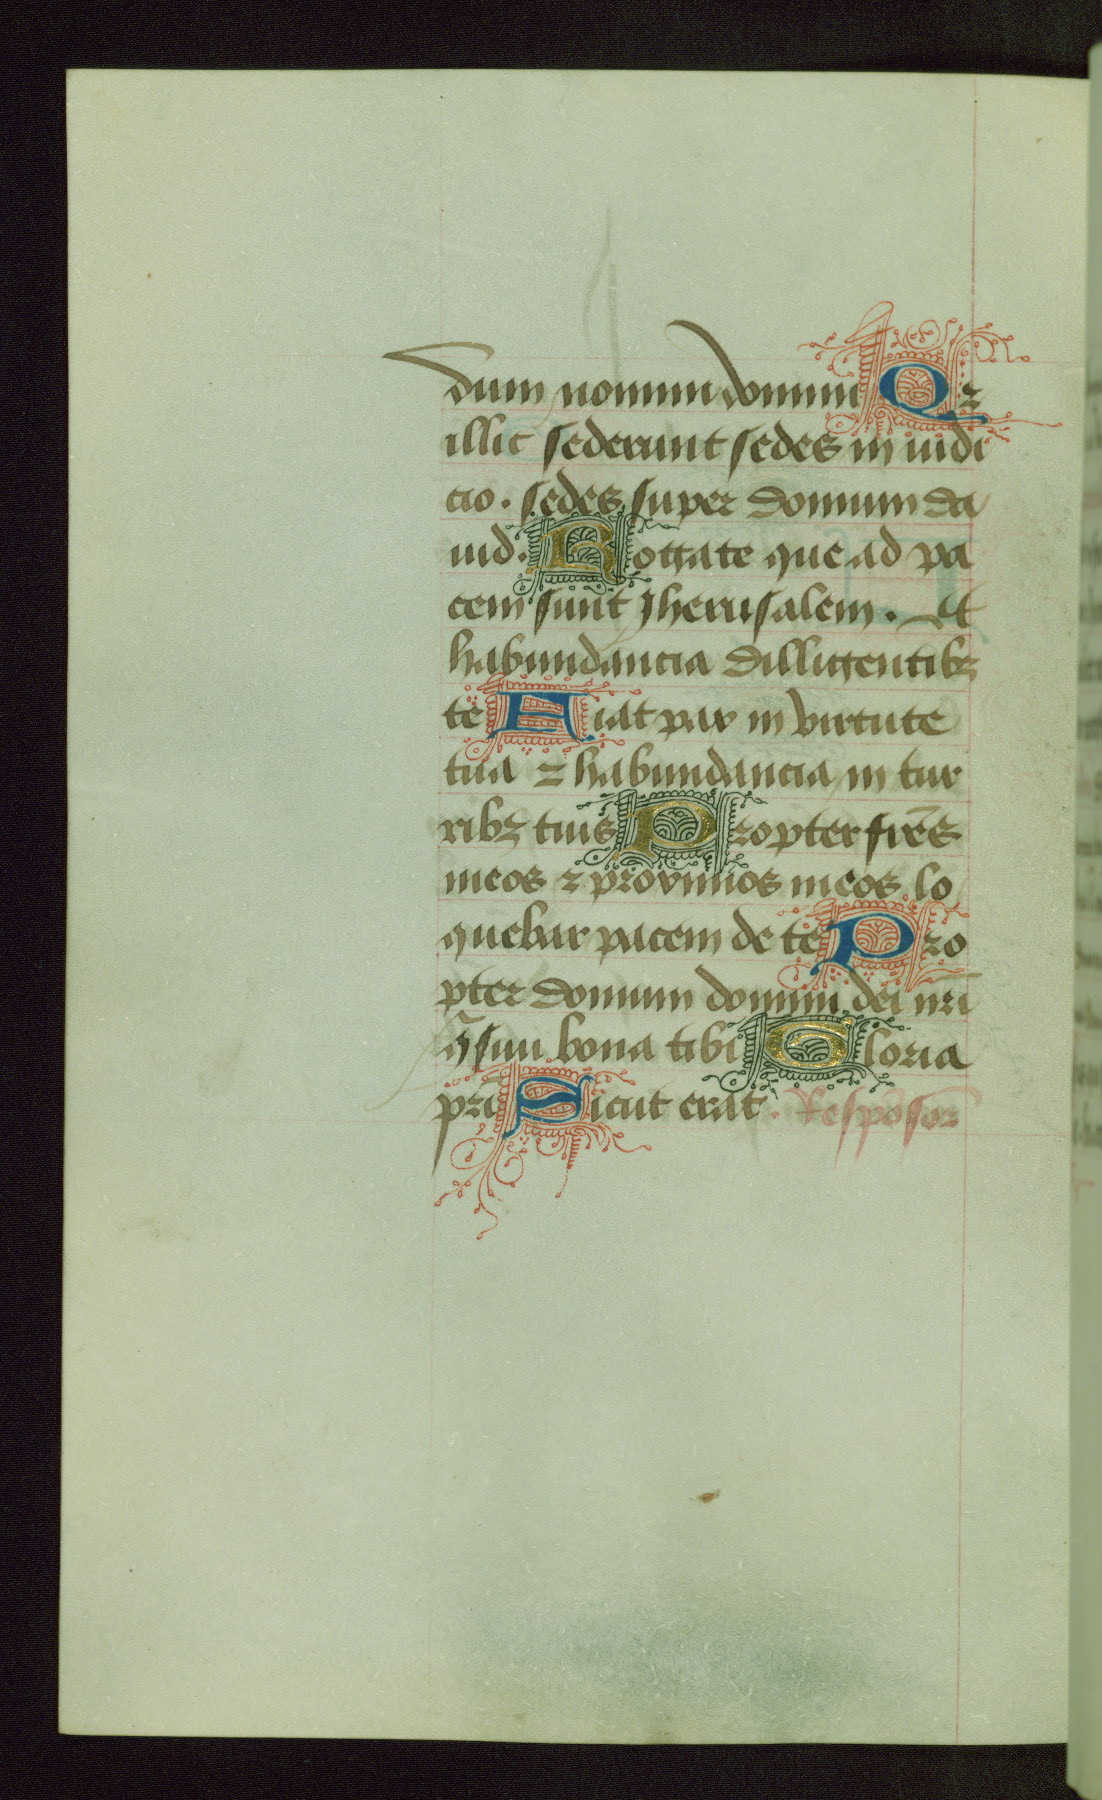 dum nomini domini Qz
illic sederunt sedes in iudi
cio. sedes super domum da
uid. Rogate que ad pa
cem sunt Jherusalem. Et
habundancia dilligentibꝫ
te Fiat pax in virtute
tua ⁊ habundancia in tur
ribꝫ tuis Propter frēs
meos ⁊ proximos meos lo
quebar pacem de te Pro
pter domum domini dei nr̄i
q̄siui bona tibi Gloria
pr̄i Sicut erat. Respōsor̄